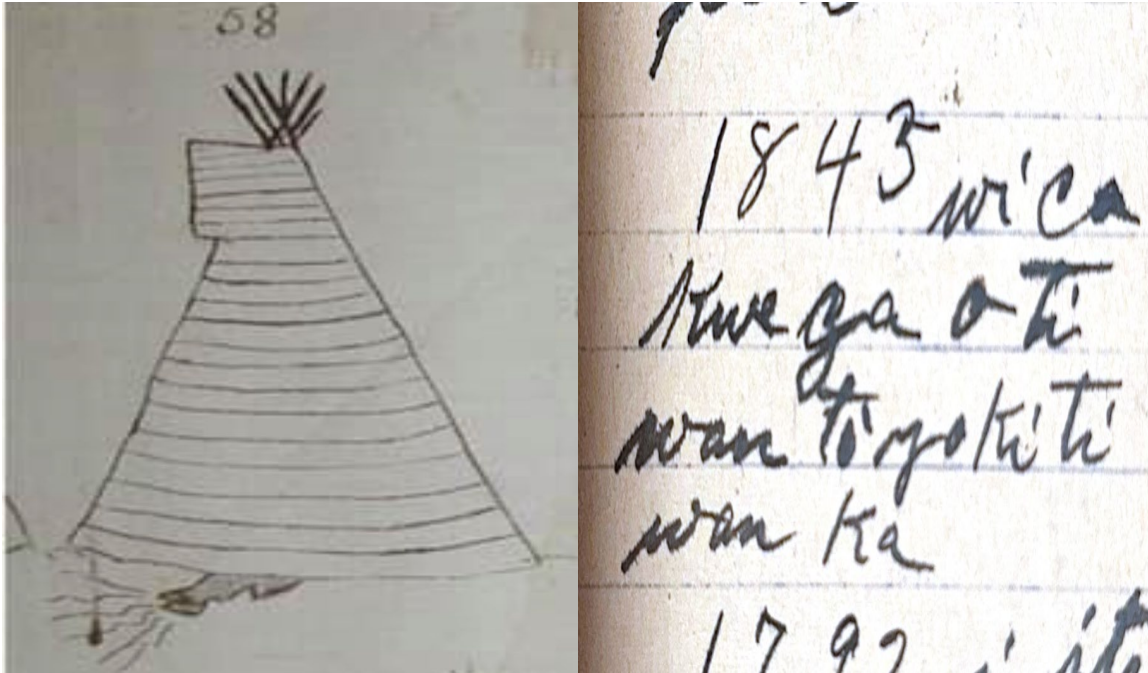 58
1843 wica
kwe ga o ti
wan ti yo ki ti
wan ka